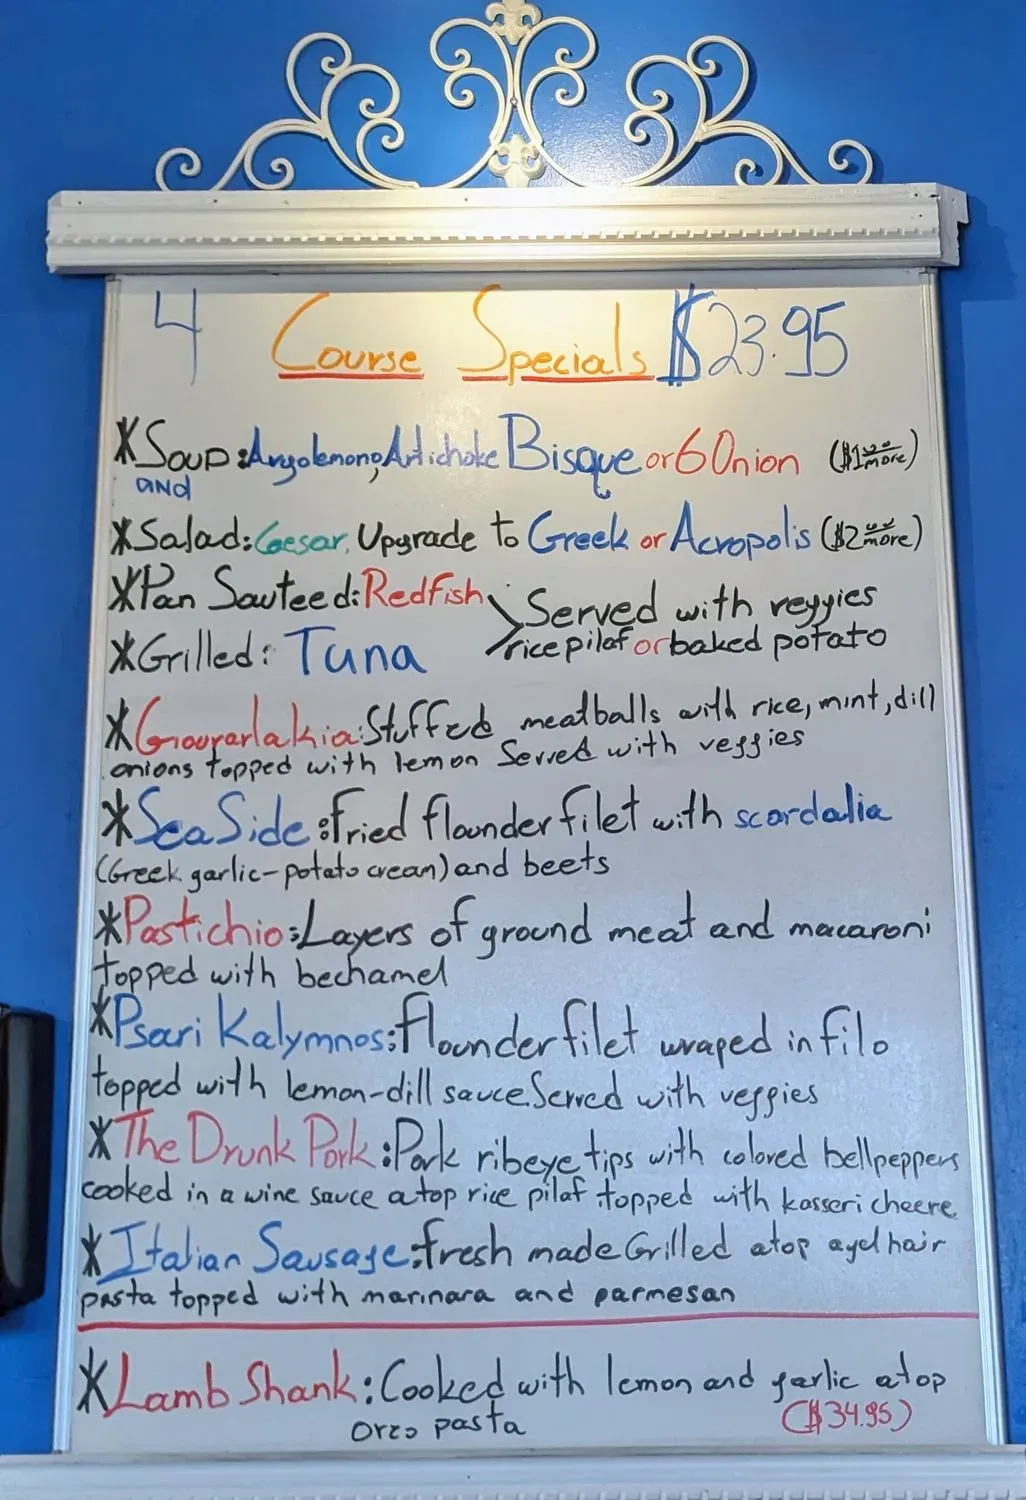 4 Course Specials $23.95
*Soup: Avgolemono, Artichoke Bisque or 6 Onion ($1.00 more)
and
*Salad: Caesar, Upgrade to Greek or Acropolis ($2.00 more)
*Pan Sauteed: Redfish
*Grilled: Tuna
Served with veggies
rice pilaf or baked potato
*Giouvarlakia: Stuffed meatballs with rice, mint, dill
onions topped with lemon Served with veggies
*Sea Side: Fried flounder filet with scordalia
(Greek garlic-potato cream) and beets
*Pastichio: Layers of ground meat and macaroni
topped with bechamel
*Psari Kalymnos: Flounder filet wraped in filo
topped with lemon-dill sauce. Served with veggies
*The Drunk Pork: Pork ribeye tips with colored bellpeppers
cooked in a wine sauce atop rice pilaf topped with kasseri cheere
*Italian Sausage: fresh made Grilled atop agel hair
pasta topped with marinara and parmesan
*Lamb Shank: Cooked with lemon and garlic atop
orzo pasta ($34.95)